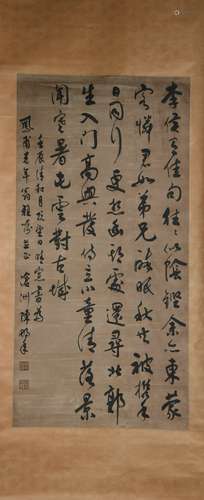 李侯有佳句往往似陰鏗余亦東蒙
客憐君如弟兄醉眠秋共被攜手
日同行更想幽期處還尋北郭
生入門高興發侍立小童清落景
聞寒杵屯雲對古城
壬辰清和月 書為
老年翁